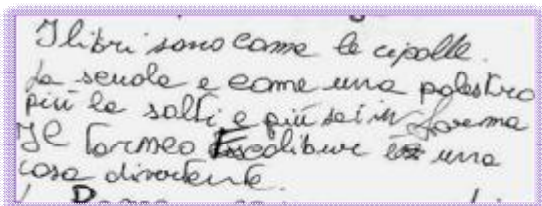 I libri sono come le cipolle.
La scuola è come una palestra
più la salti e più sei in forma
Il Torneo Escalibur è una
cosa divertente.